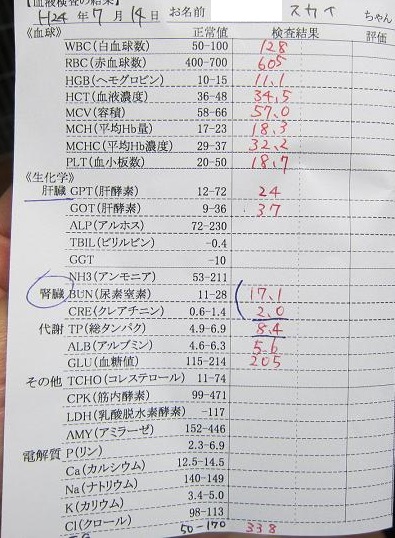 【血液検査の結果】
H24年7月14日 お名前 スカイ ちゃん
《血球》 正常値 検査結果 評価
WBC(白血球数) 50-100 128
RBC(赤血球数) 400-700 605
HGB(ヘモグロビン) 10-15 11.1
HCT(血液濃度) 36-48 34.5
MCV(容積) 58-66 57.0
MCH(平均Hb量) 17-23 18.3
MCHC(平均Hb濃度) 29-37 32.2
PLT(血小板数) 20-50 18.7
《生化学》
肝臓 GPT(肝酵素) 12-72 24
GOT(肝酵素) 9-36 37
ALP(アルホス) 72-230
TBIL(ビリルビン) -0.4
GGT -10
NH3(アンモニア) 53-211
腎臓 BUN(尿素窒素) 11-28 17.1
CRE(クレアチニン) 0.6-1.4 2.0
代謝 TP(総タンパク) 4.9-6.9 8.4
ALB(アルブミン) 4.6-6.3 5.6
GLU(血糖値) 115-214 205
その他 TCHO(コレステロール) 11-74
CPK(筋内酵素) 99-471
LDH(乳酸脱水素酵素) -117
AMY(アミラーゼ) 152-446
電解質 P(リン) 2.3-6.9
Ca(カルシウム) 12.5-14.5
Na(ナトリウム) 140-149
K(カリウム) 3.4-5.0
Cl(クロール) 98-113
50-170 338